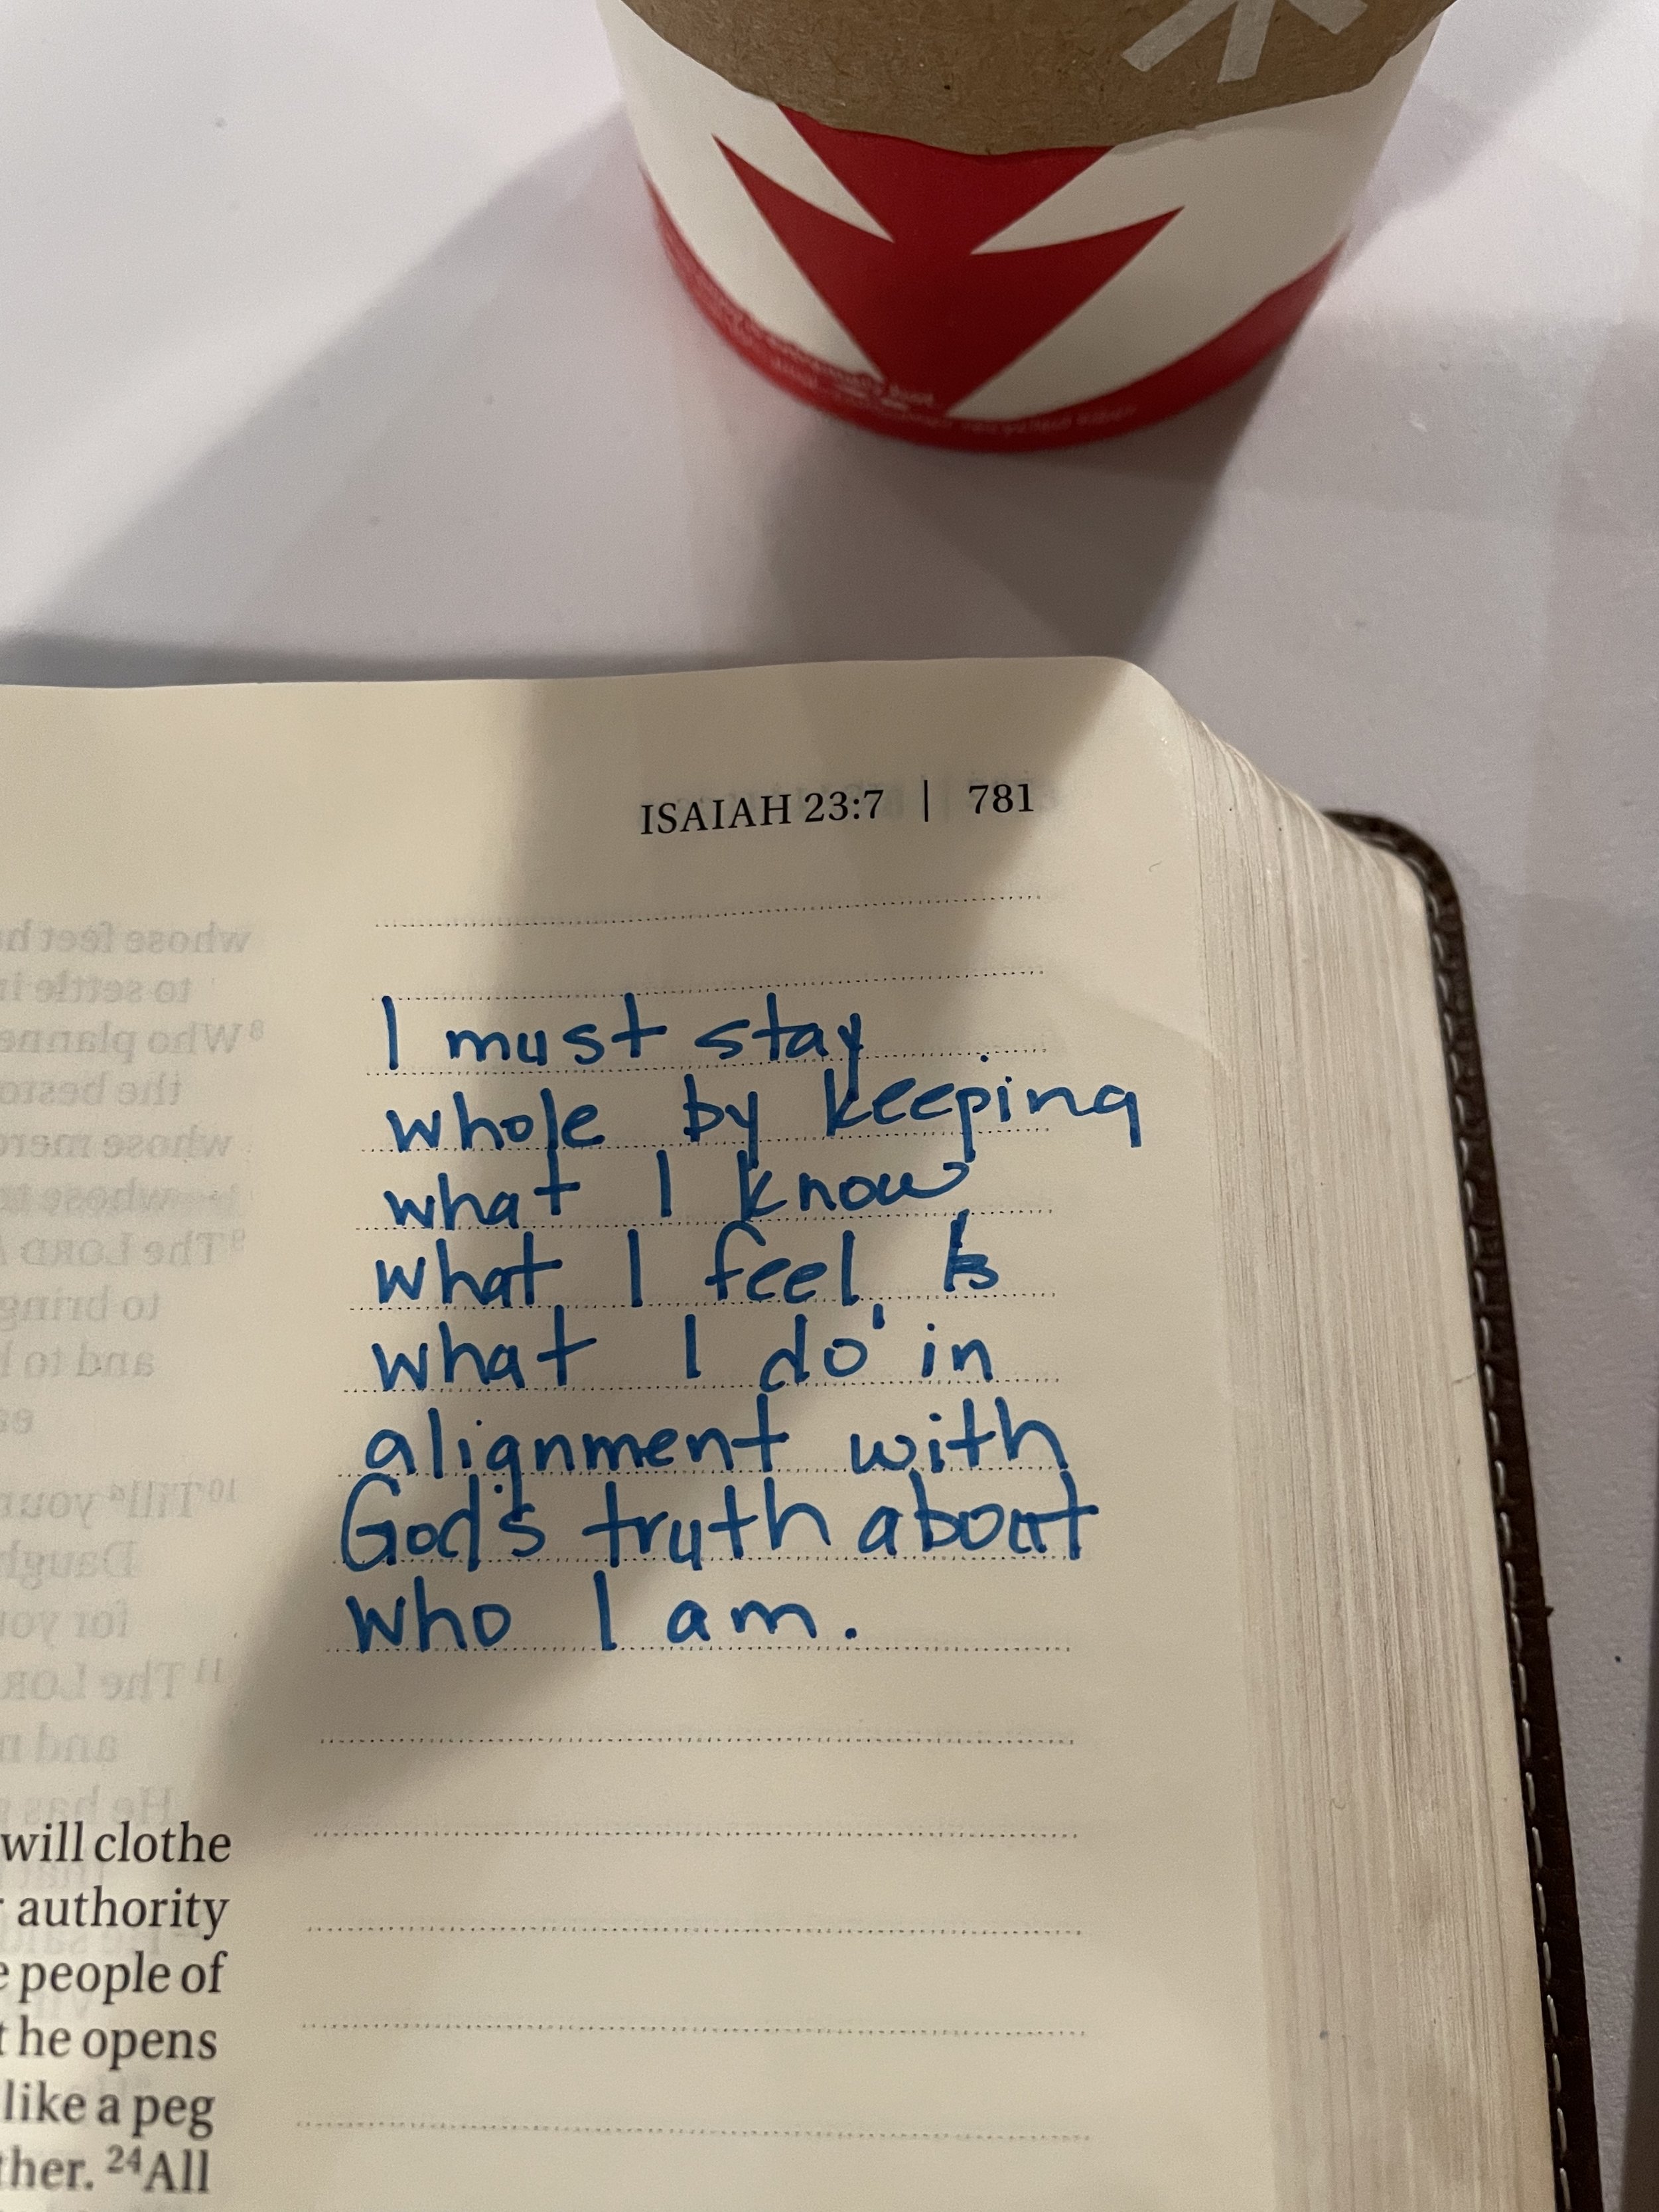 ISAIAH 23:7 | 781
I must stay
whole by keeping
what I know,
what I feel, &
what I do in
alignment with
God's truth about
who I am.
will clothe
authority
people of
he opens
like a peg
24All